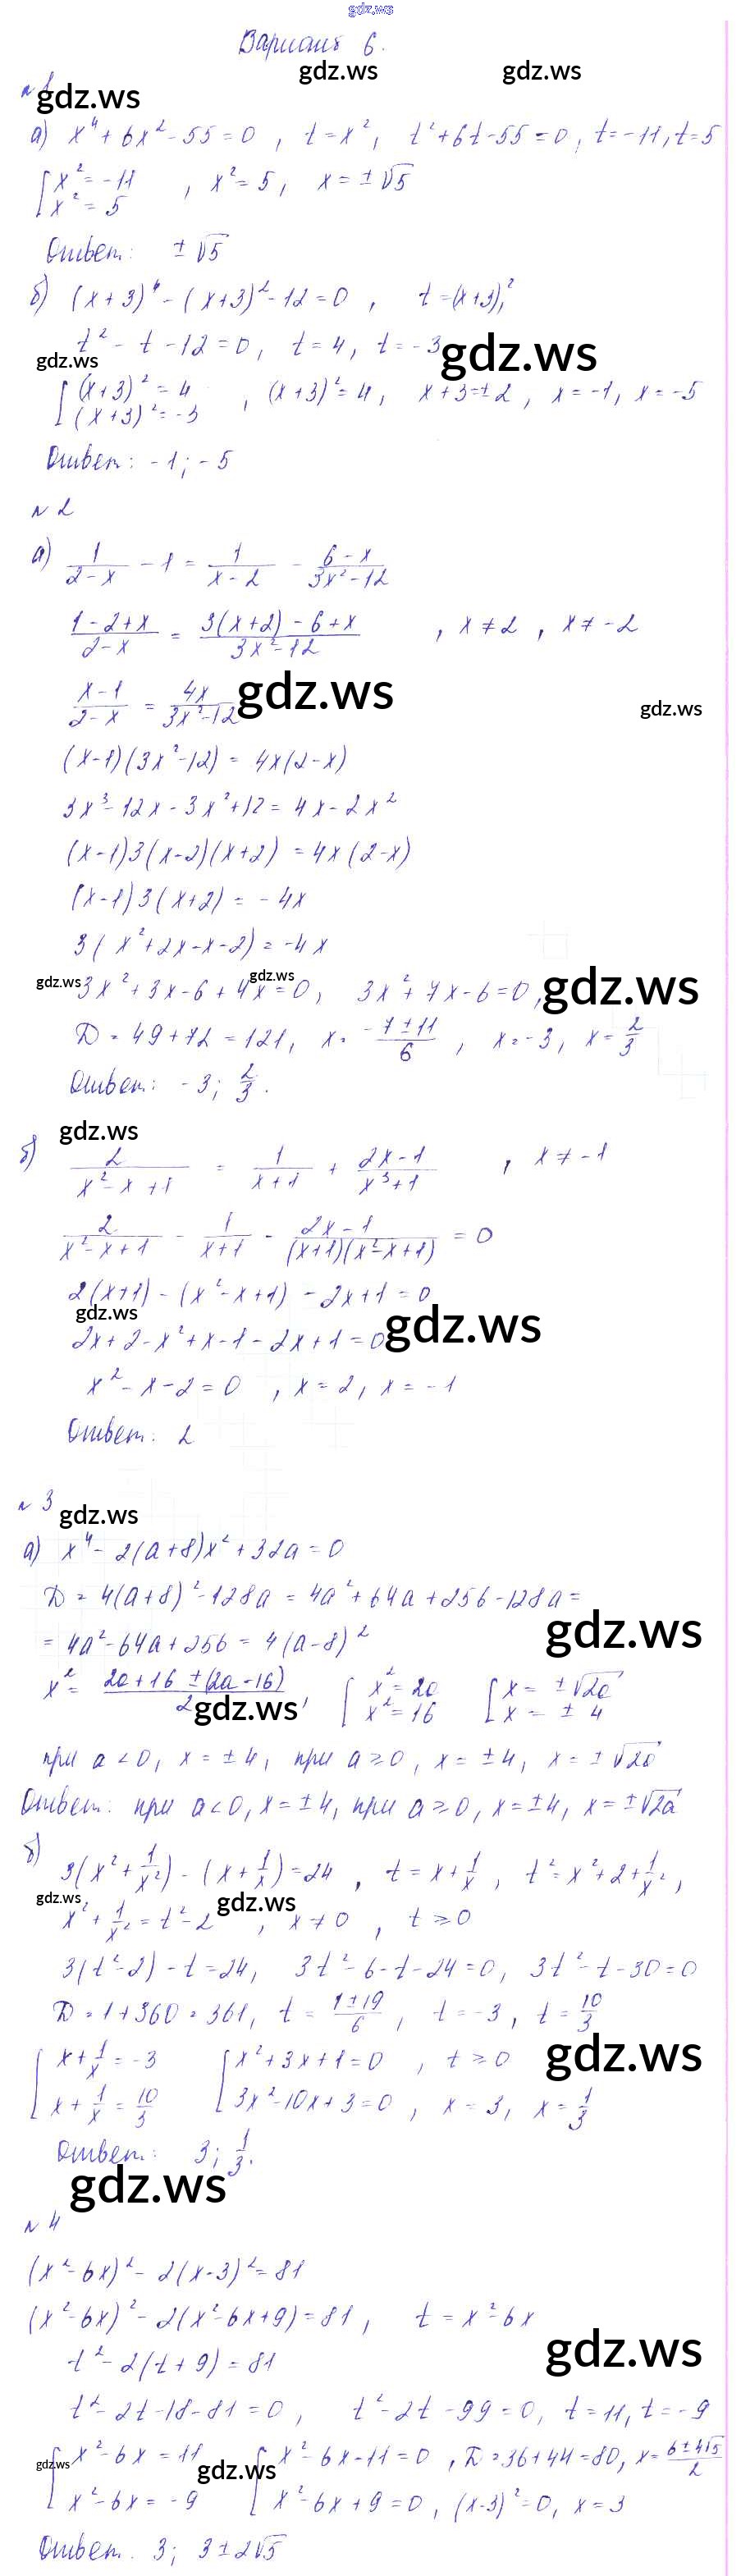 gdz.ws
Вариант 6.
gdz.ws gdz.ws
№1 gdz.ws
а) x⁴ + 6x² - 55 = 0 , t = x², t² + 6t - 55 = 0, t = -11, t = 5
[ x² = -11 , x² = 5, x = ±√5
x² = 5
Ответ: ±√5
б) (x+3)⁴ - (x+3)² - 12 = 0 , t = (x+3)²,
t² - t - 12 = 0, t = 4, t = -3 gdz.ws
gdz.ws
[ (x+3)² = 4 , (x+3)² = 4, x+3 = ±2 , x = -1, x = -5
(x+3)² = -3
Ответ: -1; -5
№2
а) 1/(2-x) - 1 = 1/(x-2) - (6-x)/(3x²-12)
(1-2+x)/(2-x) = (3(x+2)-6+x)/(3x²-12) , x ≠ 2 , x ≠ -2
(x-1)/(2-x) = 4x/(3x²-12) gdz.ws gdz.ws
(x-1)(3x²-12) = 4x(2-x)
3x³ - 12x - 3x² + 12 = 4x - 2x²
(x-1)3(x-2)(x+2) = 4x(2-x)
(x-1)3(x+2) = -4x
3(x²+2x-x-2) = -4x
gdz.ws gdz.ws gdz.ws
3x² + 3x - 6 + 4x = 0, 3x² + 7x - 6 = 0,
D = 49 + 72 = 121, x = (-7±11)/6 , x = -3, x = 2/3
Ответ: -3; 2/3.
gdz.ws
б) 2/(x²-x+1) = 1/(x+1) + (2x-1)/(x³+1) , x ≠ -1
2/(x²-x+1) - 1/(x+1) - (2x-1)/((x+1)(x²-x+1)) = 0
2(x+1) - (x²-x+1) - 2x+1 = 0
gdz.ws gdz.ws
2x+2-x²+x-1-2x+1 = 0
x² - x - 2 = 0 , x = 2, x = -1
Ответ: 2
№3 gdz.ws
а) x⁴ - 2(a+8)x² + 32a = 0
D = 4(a+8)² - 128a = 4a² + 64a + 256 - 128a =
= 4a² - 64a + 256 = 4(a-8)² gdz.ws
x² = (2a+16 ± (2a-16))/2 , [ x² = 2a [ x = ±√2a
gdz.ws x² = 16 x = ±4
при a < 0, x = ±4, при a ≥ 0, x = ±4, x = ±√2a
Ответ: при a < 0, x = ±4, при a ≥ 0, x = ±4, x = ±√2a
б) 3(x² + 1/x²) - (x + 1/x) = 24 , t = x + 1/x , t² = x² + 2 + 1/x²,
gdz.ws gdz.ws
x² + 1/x² = t² - 2 , x ≠ 0 , t ≥ 0
3(t²-2) - t = 24, 3t² - 6 - t - 24 = 0, 3t² - t - 30 = 0
D = 1 + 360 = 361, t = (1±19)/6 , t = -3, t = 10/3
gdz.ws
[ x + 1/x = -3 [ x² + 3x + 1 = 0 , t ≥ 0
x + 1/x = 10/3 3x² - 10x + 3 = 0 , x = 3, x = 1/3
Ответ: 3; 1/3.
gdz.ws
№4
(x²-6x)² - 2(x-3)² = 81
(x²-6x)² - 2(x²-6x+9) = 81, t = x²-6x
gdz.ws
t² - 2(t+9) = 81
t² - 2t - 18 - 81 = 0, t² - 2t - 99 = 0, t = 11, t = -9
gdz.ws gdz.ws
[ x² - 6x = 11 [ x² - 6x - 11 = 0 , D = 36 + 44 = 80, x = (6±4√5)/2
x² - 6x = -9 x² - 6x + 9 = 0, (x-3)² = 0, x = 3
Ответ. 3; 3±2√5